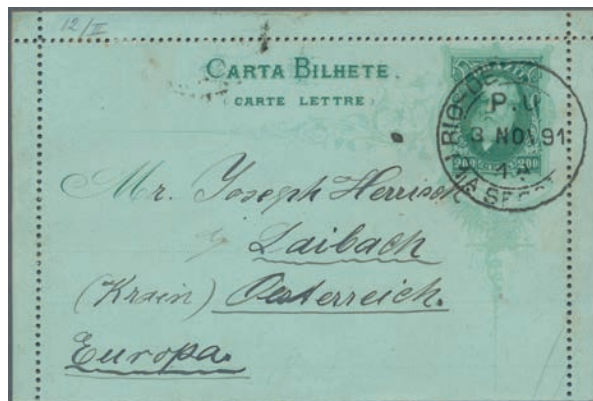 12/II
CARTA BILHETE.
(CARTE LETTRE)
P.U
3 NOV 91
1A
200 200
Mr. Joseph Herrisch
Laibach
(Krain) Oesterreich.
Europa.